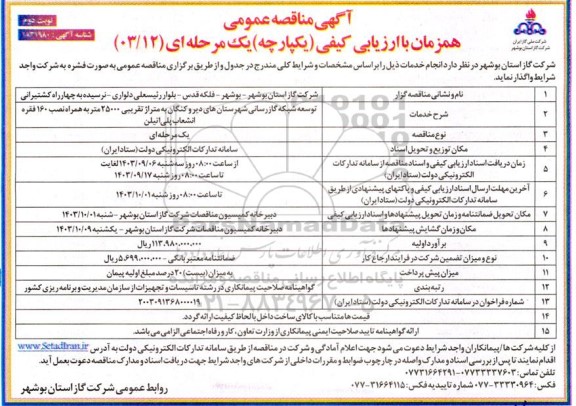 آگهی مناقصه عمومی
همزمان با ارزیابی کیفی (یکپارچه) یک مرحله ای (۰۳/۱۲)
نوبت دوم
شناسه آگهی: ۱۸۳۱۹۸۰
شرکت ملی گاز ایران
شرکت گاز استان بوشهر
شرکت گاز استان بوشهر در نظر دارد انجام خدمات ذیل را براساس مشخصات و شرایط کلی مندرج در جدول و از طریق برگزاری مناقصه عمومی به صورت فشرده به شرکت واجد
شرایط واگذار نماید.
۱ نام و نشانی مناقصه گزار شرکت گاز استان بوشهر - بوشهر - فلکه قدس - بلوار رئیسعلی دلواری - نرسیده به چهارراه کشتیرانی
۲ شرح خدمات توسعه شبکه گازرسانی شهرستان های دیر و کنگان به متراژ تقریبی ۲۵۰۰۰ متر به همراه نصب ۱۶۰ فقره
انشعاب پلی اتیلن
۳ نوع مناقصه یک مرحله ای
۴ مکان توزیع و تحویل اسناد سامانه تدارکات الکترونیکی دولت (ستاد ایران)
۵ زمان دریافت اسناد ارزیابی کیفی و اسناد مناقصه از سامانه تدارکات از ساعت ۰۸:۰۰ روز سه شنبه ۱۴۰۳/۰۹/۰۶ لغایت
الکترونیکی دولت (ستاد ایران) تا ساعت ۰۸:۰۰ روز شنبه ۱۴۰۳/۰۹/۱۷
۶ آخرین مهلت ارسال اسناد ارزیابی کیفی و پاکتهای پیشنهادی از طریق تا ساعت ۰۸:۰۰ روز شنبه ۱۴۰۳/۱۰/۰۱
سامانه تدارکات الکترونیکی دولت (ستاد ایران)
۷ مکان تحویل ضمانتنامه و زمان تحویل پیشنهادها و اسناد ارزیابی کیفی دبیرخانه کمیسیون مناقصات شرکت گاز استان بوشهر - شنبه ۱۴۰۳/۱۰/۰۱
۸ مکان و زمان گشایش پیشنهادها دبیرخانه کمیسیون مناقصات شرکت گاز استان بوشهر - یکشنبه ۱۴۰۳/۱۰/۰۹
۹ برآورد اولیه ۱۱۳.۹۸۰.۰۰۰.۰۰۰ ریال
۱۰ نوع و میزان تضمین شرکت در فرایند ارجاع کار ضمانتنامه معتبر بانکی - ۵.۶۹۹.۰۰۰.۰۰۰ ریال
۱۱ میزان پیش پرداخت به میزان (بیست) ۲۰ درصد مبلغ اولیه پیمان
۱۲ رتبه بندی گواهینامه صلاحیت پیمانکاری در رشته تاسیسات و تجهیزات از سازمان مدیریت و برنامه ریزی کشور
۱۳ شماره فراخوان در سامانه تدارکات الکترونیکی دولت (ستاد ایران) ۲۰۰۳۰۹۱۳۶۸۰۰۰۰۱۹
۱۴ قیمت ها متناسب با کالای ساخت داخل با لحاظ کیفیت ارائه گردد.
۱۵ ارائه گواهینامه تایید صلاحیت ایمنی پیمانکاری از وزارت تعاون، کار و رفاه اجتماعی الزامی می باشد.
از کلیه شرکت ها / پیمانکاران واجد شرایط دعوت می شود جهت اعلام آمادگی و شرکت در مناقصه از طریق سامانه تدارکات الکترونیکی دولت به آدرس www.Setadiran.ir
اقدام نمایند تا پس از بررسی اسناد و مدارک واصله در چارچوب ضوابط و مقررات داخلی از شرکت های واجد شرایط جهت دریافت اسناد و مدارک مناقصه دعوت بعمل آید.
تلفن تماس: ۰۷۷۳۳۳۳۷۶۰۳-۰۷۷۳۱۶۶۴۲۹۱
شماره فاکس: ۳۳۳۳۰۹۶۴-۰۷۷ شماره تاییدیه فکس: ۳۱۶۶۴۱۱۵-۰۷۷
روابط عمومی شرکت گاز استان بوشهر